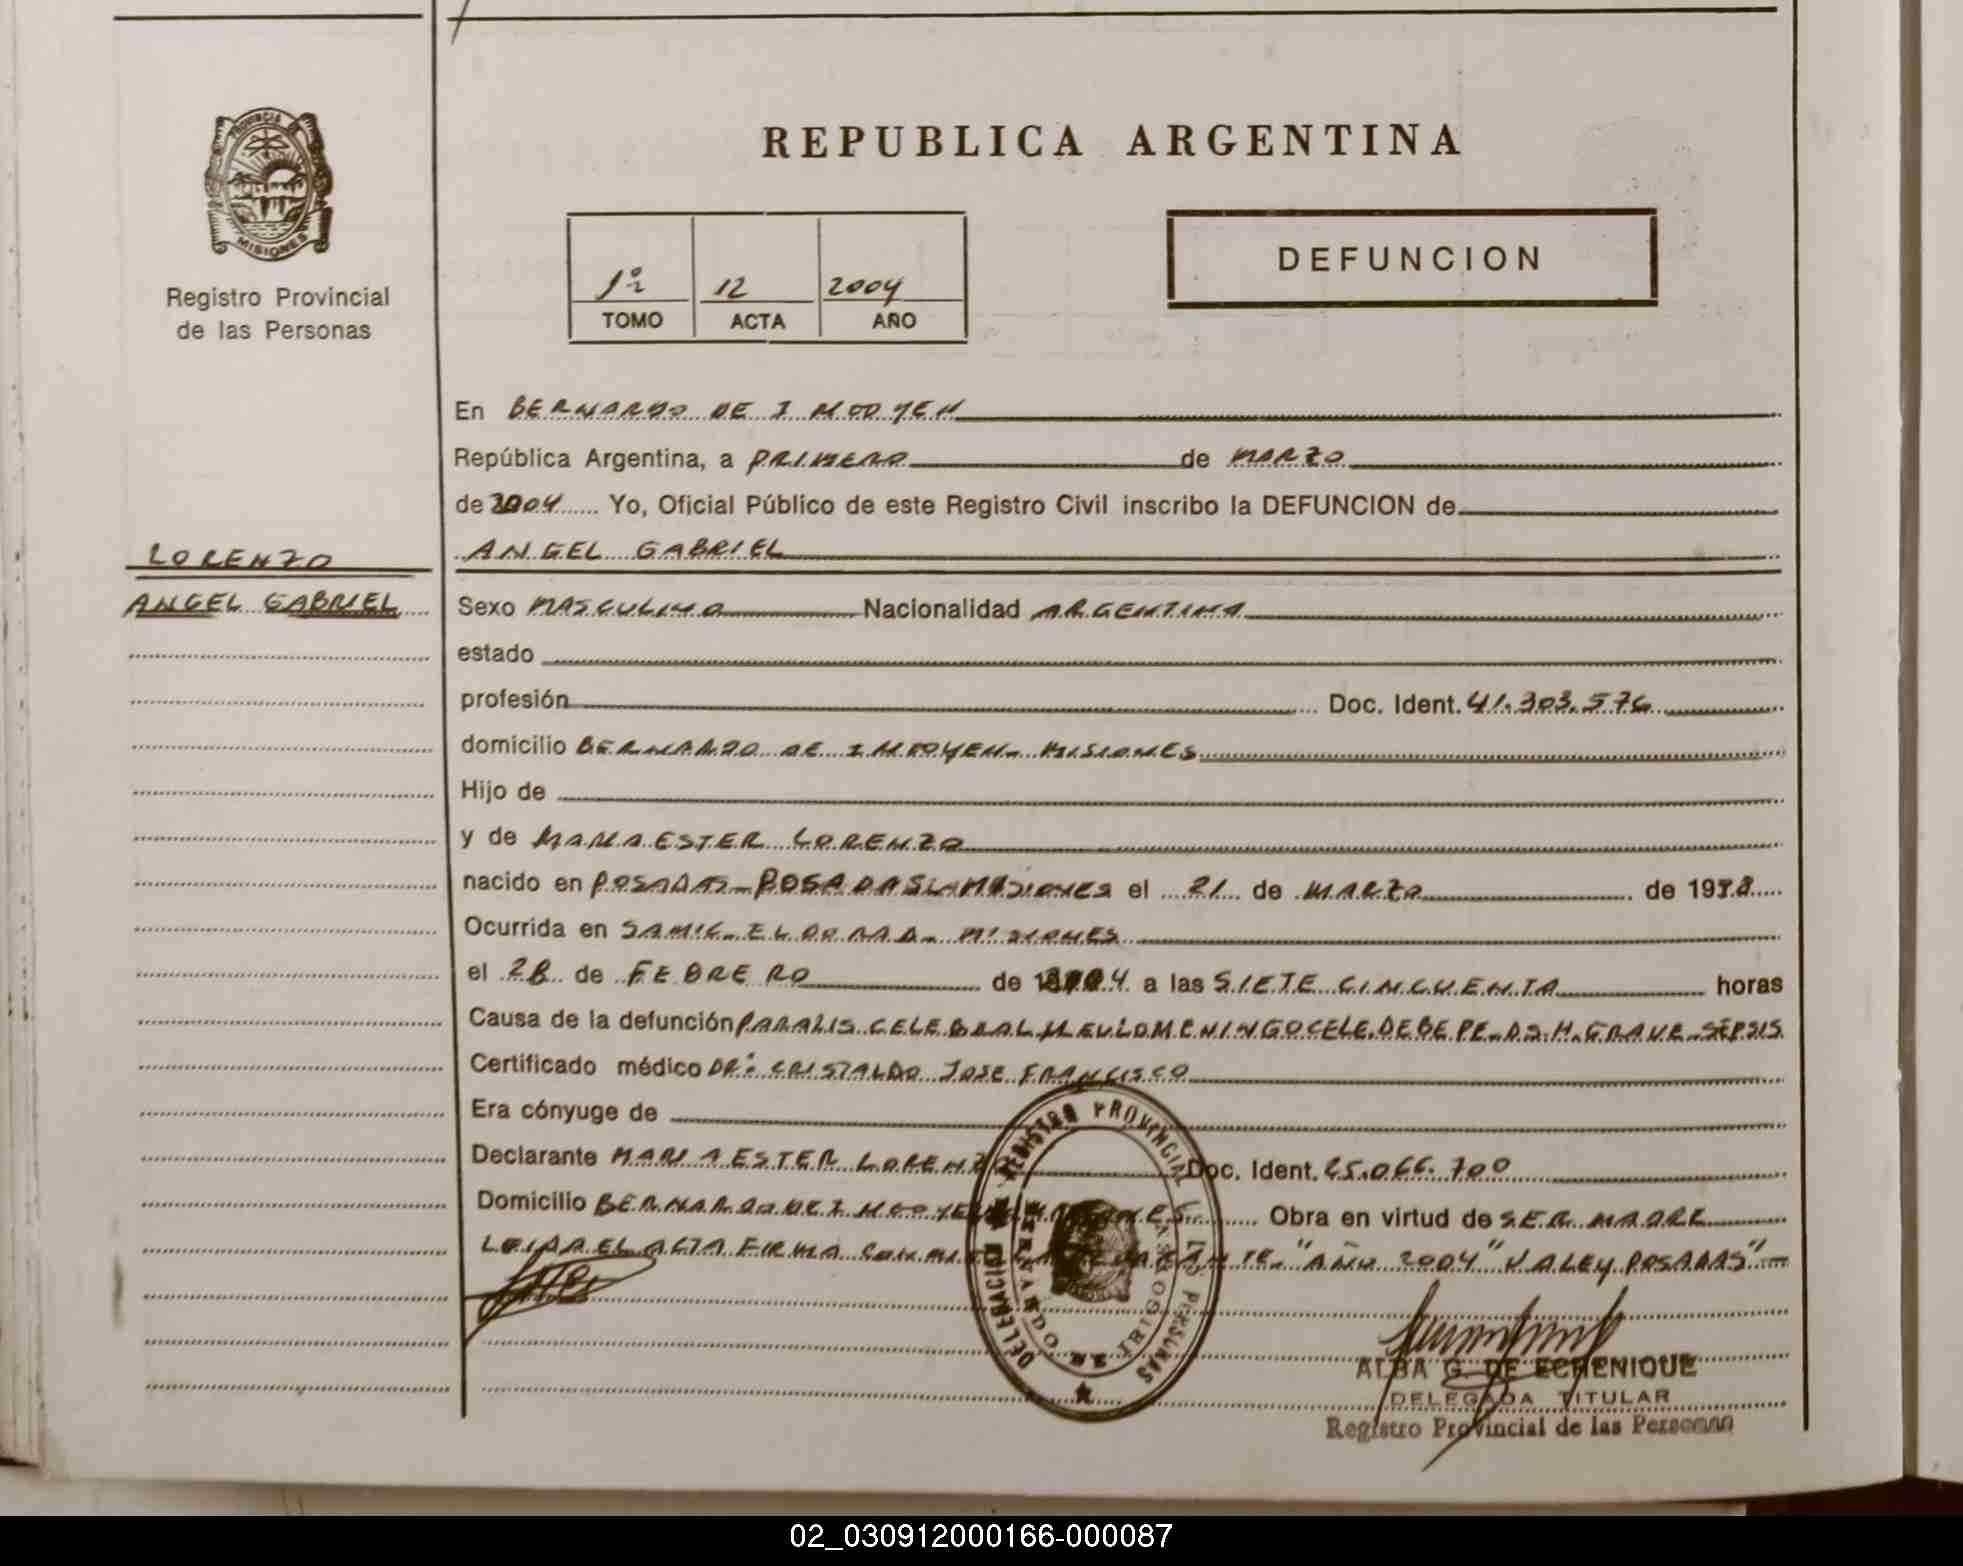 PROVINCIA DE
MISIONES
Registro Provincial
de las Personas
REPUBLICA ARGENTINA
DEFUNCION
12 2004
TOMO ACTA AÑO
En BERNARDO DE IRIGOYEN
República Argentina, a PRIMERO de MARZO
de 2004 Yo, Oficial Público de este Registro Civil inscribo la DEFUNCION de
LORENZO
ANGEL GABRIEL
ANGEL GABRIEL
Sexo MASCULINO Nacionalidad ARGENTINA
estado
profesión Doc. Ident. 41.303.576
domicilio BERNARDO DE IRIGOYEN - MISIONES
Hijo de
y de MARIA ESTER LORENZO
nacido en POSADAS - POSADAS - MISIONES el 21 de MARZO de 19
Ocurrida en SAMIC - ELDORADO - MISIONES
el 28 de FEBRERO de 2004 a las SIETE CINCUENTA horas
Causa de la defunción PARALIS CELEBRAL MEULOMENINGOCELE DEBE PE - DS.H. GRAVE - SEPSIS
Certificado médico DR: CRISTALDO JOSE FRANCISCO
Era cónyuge de
Declarante MARIA ESTER LORENZO Doc. Ident. 25.066.700
Domicilio BERNARDO DE IRIGOYEN - MISIONES Obra en virtud de SER MADRE
LEIDA EL ACTA FIRMA CONMIGO "AÑO 2004" VALE Y POSADAS" -
DELEGACION REGISTRO PROVINCIAL DE LAS PERSONAS
BERNARDO DE IRIGOYEN
ALBA G. DE ECHENIQUE
DELEGADA TITULAR
Registro Provincial de las Personas
02_030912000166-000087